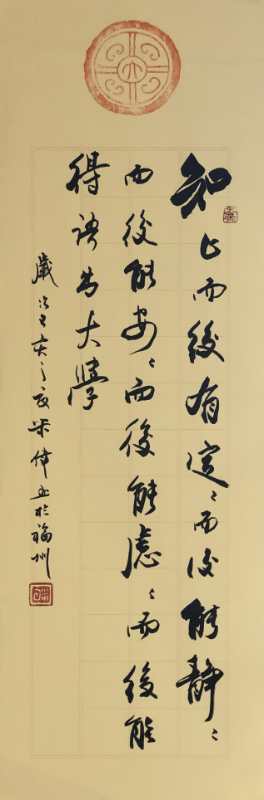 知止而後有定々而後能靜々
而後能安々而後能慮々而後能
得語為大學
歲次己亥之夏偉書於福州